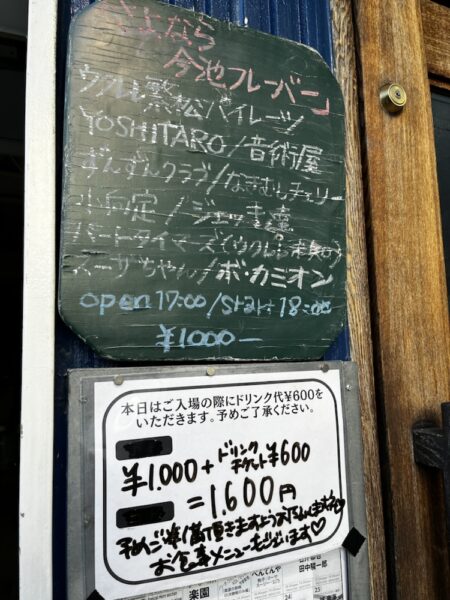 さよなら
今池フレーバー」
ウクレレ繁松パイレーツ
YOSHITARO/音術屋
ずんずんクラブ/なきむしチェリー
小向定/ジェッキ壹
パートタイマーズ(ウクレレ
スーザちゃん/ボ・カミオン
open 17:00/start 18:00
¥1000-
本日はご入場の際にドリンク代¥600を
いただきます。予めご了承ください。
¥1.000+ドリンクチケット¥600
=1.600円
予めご準備頂きますようお願いします
お食事メニューもございます♡
楽園
へんてんや
田中陽一郎